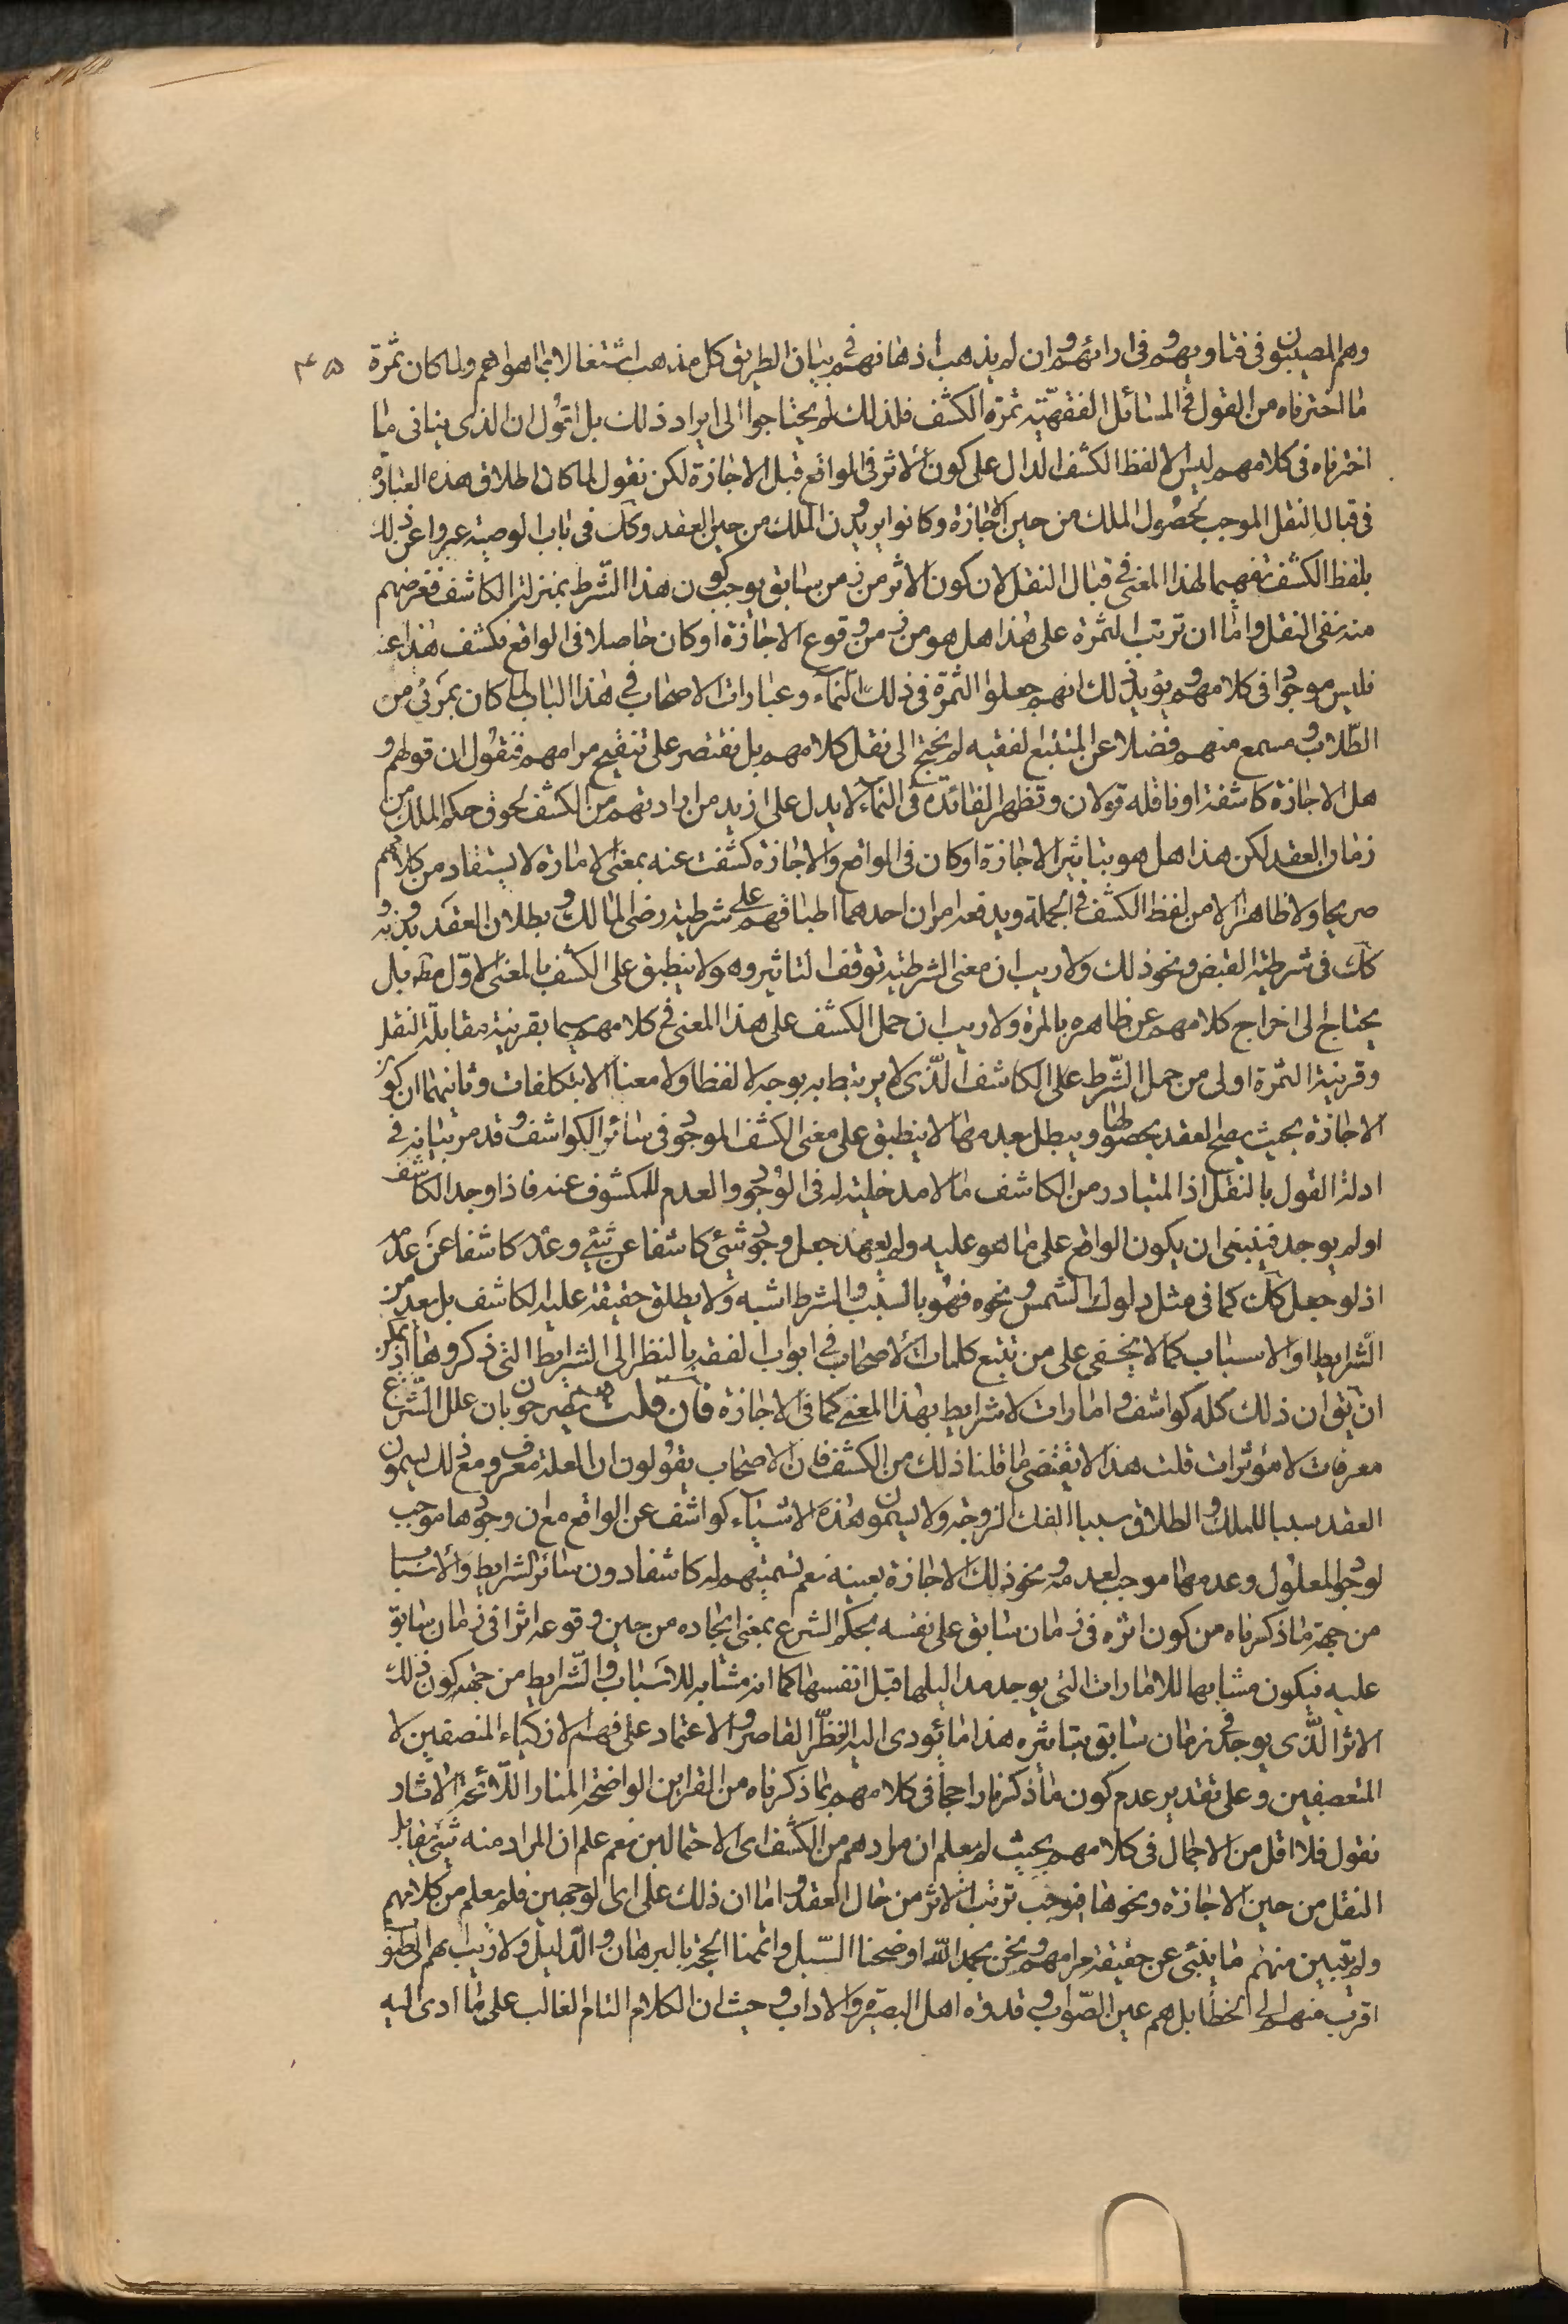 وهم المصيبون فى فتاويهم وفى ارائهم وان لم يذهب اذهانهم فى بيان الطريق كل مذهب اشتغالا بما هو اهم ولما كان ثمرة
٤٥
ما اخترناه من القول فى المسائل الفقهيّة ثمرة الكشف فلذلك لم يحتاجوا الى ايراد ذلك بل اقول ان الذى ينافى ما
اخترناه فى كلامهم ليس الا لفظ الكشف الدال على كون الاثر فى الواقع قبل الاجازة لكن نقول لما كان اطلاق هذه العبارة
فى قبال النقل الموجب لحصول الملك من حين الاجازة وكانوا يريدون الملك من حين العقد وكك فى باب الوصية عبروا عن ذلك
بلفظ الكشف تفهيما لهذا المعنى فى قبال النقل لان كون الاثر من زمن سابق يوجب كون هذا الشّرط بمنزلة الكاشف فغرضهم
منه نفى النقل واما ان ترتب الثمرة على هذا هل هو من زمن وقوع الاجازة او كان حاصلا فى الواقع فكشف هذا عنه
فليس موجودا فى كلامهم ويؤيد ذلك انهم جعلوا الثمرة فى ذلك النّماء وعبارات الاصحاب فى هذا الباب لما كان بمرئى من
الطّلاب ومسمع منهم فضلا عن المتتبع الفقيه لم نحتج الى نقل كلامهم بل نقتصر على تنقيح مرامهم فنقول ان قولهم و
هل الاجازة كاشفة او ناقله قولان وتظهر الفائدة فى النماء لا يدل على ازيد من ارادتهم من الكشف لحوق حكم الملك من
زمان العقد لكن هذا هل هو بتاثير الاجازة او كان فى الواقع والاجازة كشفت عنه بمعنى الامارة لا يستفاد من كلامهم
صريحا ولا ظاهرا الا من لفظ الكشف فى الجملة ويدفعه امران احدهما اطباقهم على شرطية رضى المالك وبطلان العقد بدونه و
كك فى شرطية القبض ونحو ذلك ولا ريب ان معنى الشرطية توقف التاثير وهو لا ينطبق على الكشف بالمعنى الاوّل مط بل
يحتاج الى اخراج كلامهم عن ظاهره بالمرة ولا ريب ان حمل الكشف على هذا المعنى فى كلامهم سيما بقرينة مقابلة النقل
وقرينة الثمرة اولى من حمل الشّرط على الكاشف الّذى لا يرتبط به بوجه لا لفظا ولا معنا الا بتكلفات وثانيهما ان كون
الاجازة بحيث يصح العقد بحصولها ويبطل بعدمها لا ينطبق على معنى الكشف الموجود فى سائر الكواشف وقد مر بيانه فى
ادلة القول بالنقل اذ المتبادر من الكاشف ما لا مدخلية له فى الوجود والعدم للمكشوف عنه فاذا وجد الكاشف
او لم يوجد فينبغى ان يكون الواقع على ما هو عليه ولم يعهد جعل وجود شئ كاشفا عن شئ وعدمه كاشفا عن عدمه
اذ لو جعل كك كما فى مثل دلوك الشمس ونحوه فهو بالسّبب والشرط اشبه ولا يطلق حقيقة عليه الكاشف بل يعد من
الشّرايط او الاسباب كما لا يخفى على من تتبع كلمات الاصحاب فى ابواب الفقه بالنظر الى الشرايط التى ذكروها اذ يمكن
ان يق ان ذلك كله كواشف وامارات لا شرايط بهذا المعنى كما فى الاجازة فان قلت هم يصرحون بان علل الشّرع
معرفات لا مؤثرات قلت هذا لا يقتضى ما قلنا ذلك من الكشف فان الاصحاب يقولون ان العلة معرف ومع ذلك يسمون
العقد سببا للملك والطلاق سببا لفك الزوجة ولا يسمون هذه الاشياء كواشف عن الواقع مع ان وجودها موجب
لوجود المعلول وعدمها موجب لعدمه ونحو ذلك الاجازة بعينه نعم تسميتهم له كاشفا دون سائر الشرايط والاسباب
من جهة ما ذكرناه من كون اثره فى زمان سابق على نفسه بحكم الشرع بمعنى ايجاده من حين وقوعه اثرا فى زمان سابق
عليه فيكون مشابها للامارات التى يوجد مداليلها قبل انفسها كما انه مشابه للاسباب والشّرايط من جهة كون ذلك
الاثر الّذى يوجد فى زمان سابق بتاثيره هذا ما يؤدى اليه النظر القاصر والاعتماد على فهم الازكياء المنصفين لا
المتعصفين وعلى تقدير عدم كون ما ذكرنا راجحا فى كلامهم بما ذكرناه من القراين الواضحة المنار اللائحة الاثار
نقول فلا اقل من الاجمال فى كلامهم بحيث لم يعلم ان مرادهم من الكشف اى الاحتمالين نعم علم ان المراد منه شئ يقابل
النقل من حين الاجازة ونحوها فيوجب ترتب الاثر من حال العقد واما ان ذلك على اى الوجهين فلم يعلم من كلامهم
ولم يتبين منهم ما ينبئ عن حقيقة مرامهم ونحن بحمد الله اوضحنا السّبل واتممنا الحجة بالبرهان والدّليل ولا ريب
اقرب منهم الى الخطا بل هم عين الصّواب وقدوة اهل البصيرة والاداب وحيث ان الكلام التام الغالب على ما ادى اليه